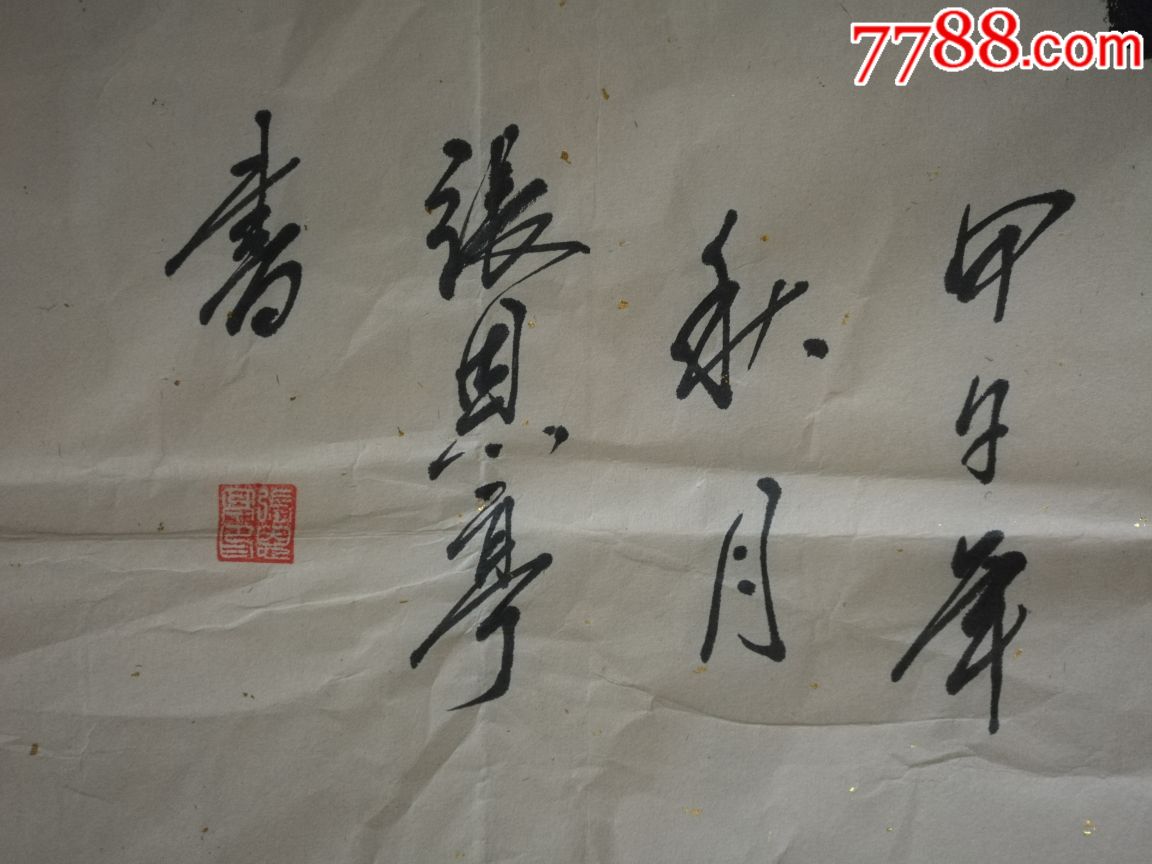 7788.com
甲午年
秋月
張恩亭
書